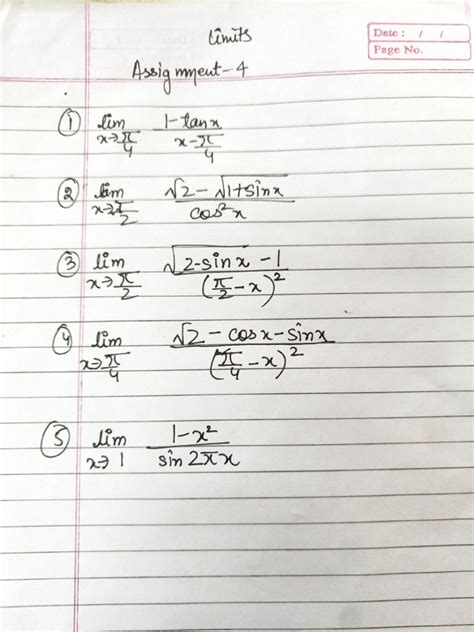 Limits
Date : / /
Page No.
Assignment-4
① lim x→π/4 (1-tanx)/(x-π/4)
② lim x→π/2 (√2-√(1+sinx))/(cos²x)
③ lim x→π/2 (√(2-sinx) -1)/((π/2-x)²)
④ lim x→π/4 (√2-cosx-sinx)/((π/4-x)²)
⑤ lim x→1 (1-x²)/(sin2πx)